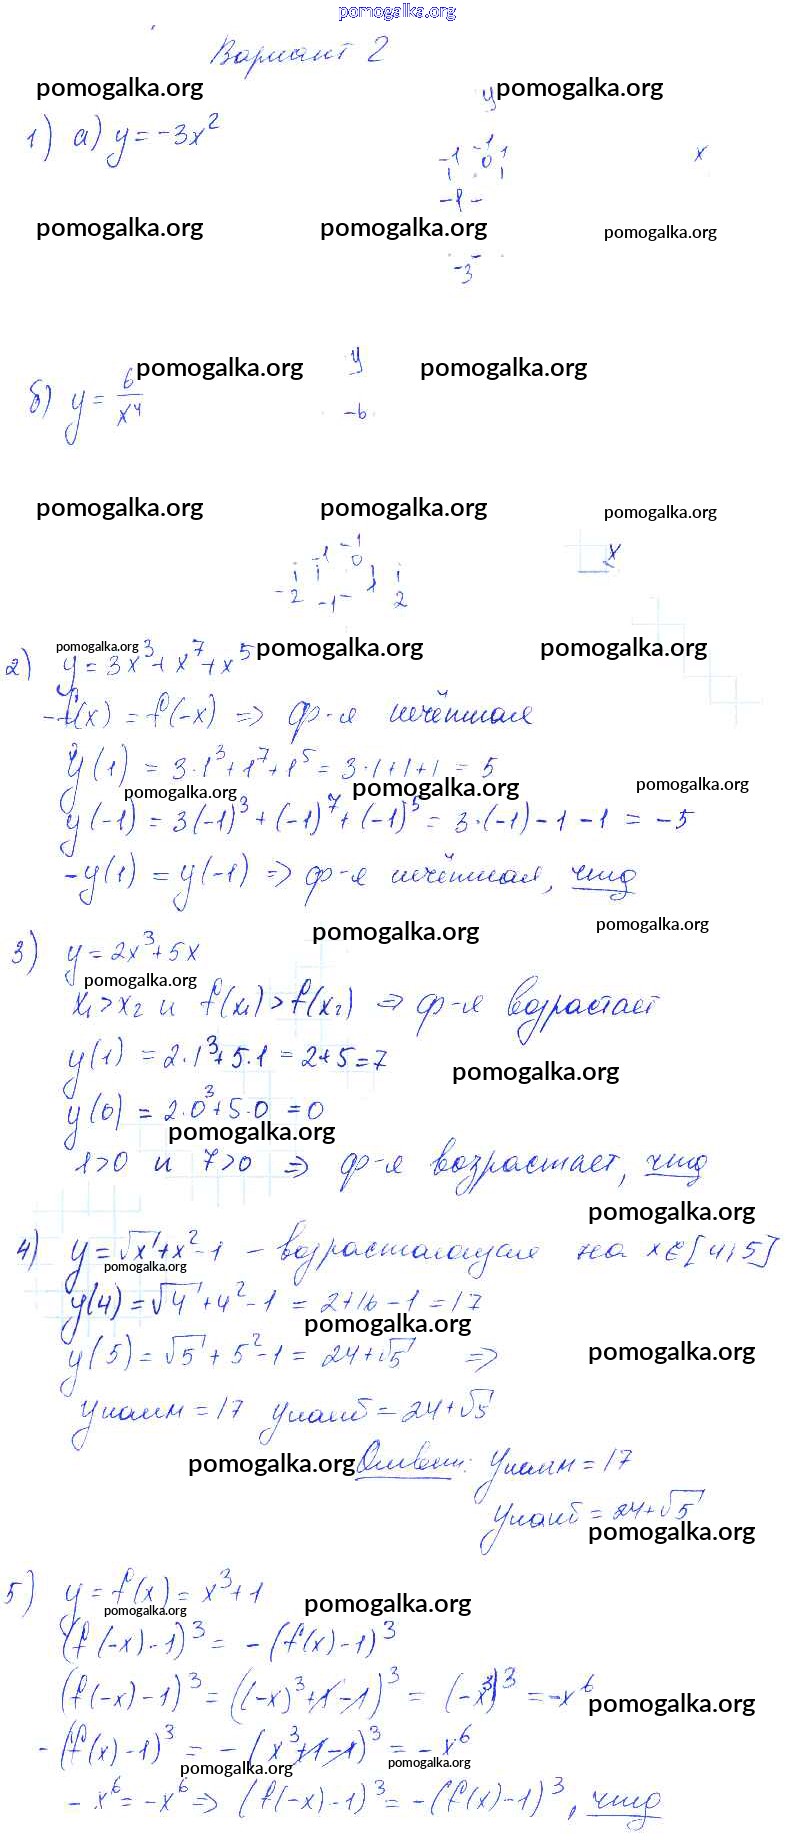 pomogalka.org
Вариант 2
pomogalka.org pomogalka.org
y
1) а) y = -3x²
-1 -1 0 1 x
-1
pomogalka.org pomogalka.org pomogalka.org
-3
pomogalka.org y pomogalka.org
б) y = 6/x⁴
-6
pomogalka.org pomogalka.org pomogalka.org
-1 -1 0 x
-2 -1 1 2
pomogalka.org pomogalka.org pomogalka.org
2) y = 3x³ + x⁷ + x⁵
-f(x) = f(-x) => ф-я нечётная
y(1) = 3·1³ + 1⁷ + 1⁵ = 3·1+1+1 = 5
pomogalka.org pomogalka.org pomogalka.org
y(-1) = 3(-1)³ + (-1)⁷ + (-1)⁵ = 3·(-1) - 1 - 1 = -5
-y(1) = y(-1) => ф-я нечётная, чтд
pomogalka.org pomogalka.org
3) y = 2x³ + 5x
pomogalka.org
x₁ > x₂ и f(x₁) > f(x₂) => ф-я возрастает
y(1) = 2·1³ + 5·1 = 2+5 = 7
pomogalka.org
y(0) = 2·0³ + 5·0 = 0
pomogalka.org
1>0 и 7>0 => ф-я возрастает, чтд
pomogalka.org
4) y = √x + x² - 1 - возрастающая на x∈[4;5]
pomogalka.org
y(4) = √4 + 4² - 1 = 2+16-1 = 17
pomogalka.org
y(5) = √5 + 5² - 1 = 24+√5 =>
pomogalka.org
yнаим = 17 yнаиб = 24+√5
pomogalka.org Ответ: yнаим = 17
yнаиб = 24+√5
pomogalka.org
5) y = f(x) = x³ + 1
pomogalka.org pomogalka.org
(f(-x) - 1)³ = -(f(x) - 1)³
(f(-x) - 1)³ = ((-x)³ + 1 - 1)³ = (-x³)³ = -x⁶
pomogalka.org
-(f(x) - 1)³ = -(x³ + 1 - 1)³ = -x⁶
pomogalka.org pomogalka.org
-x⁶ = -x⁶ => (f(-x) - 1)³ = -(f(x) - 1)³, чтд